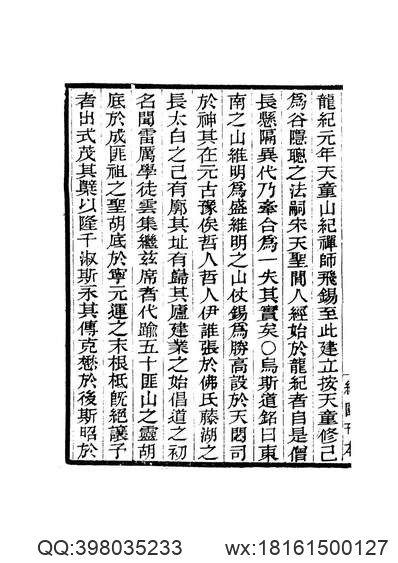 龍紀元年天童山紀禪師飛錫至此建立按天童修己
為谷隱聰之法嗣宋天聖間人經始於龍紀者自是僧
長懸隔異代乃牽合為一失其實矣○烏斯道銘曰東
南之山維明為盛維明之山仗錫為勝高設於天閟司
於神其在元古豫俟哲人哲人伊誰張於佛氏藤湖之
長太白之己有廓其址有歸其廬建業之始倡道之初
名聞雷厲學徒雲集繼茲席者代踰五十匪山之靈胡
底於成匪祖之聖胡底於寧元運之末根柢旣絕讓子
者出式茂其櫱以隆千淑斯永其傳克懋於後斯昭於
QQ:398035233 wx:18161500127